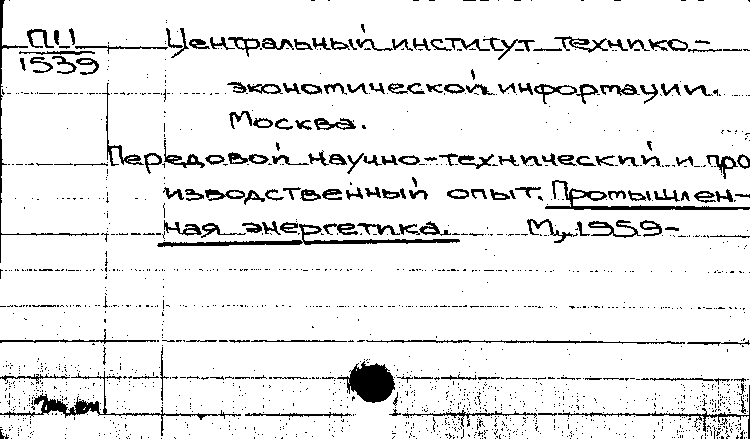 ПЦ
1539
Центральный институт технико-
экономической информации.
Москва.
Передовой научно-технический и про
изводственный опыт. Промышлен-
ная энергетика. М., 1959-